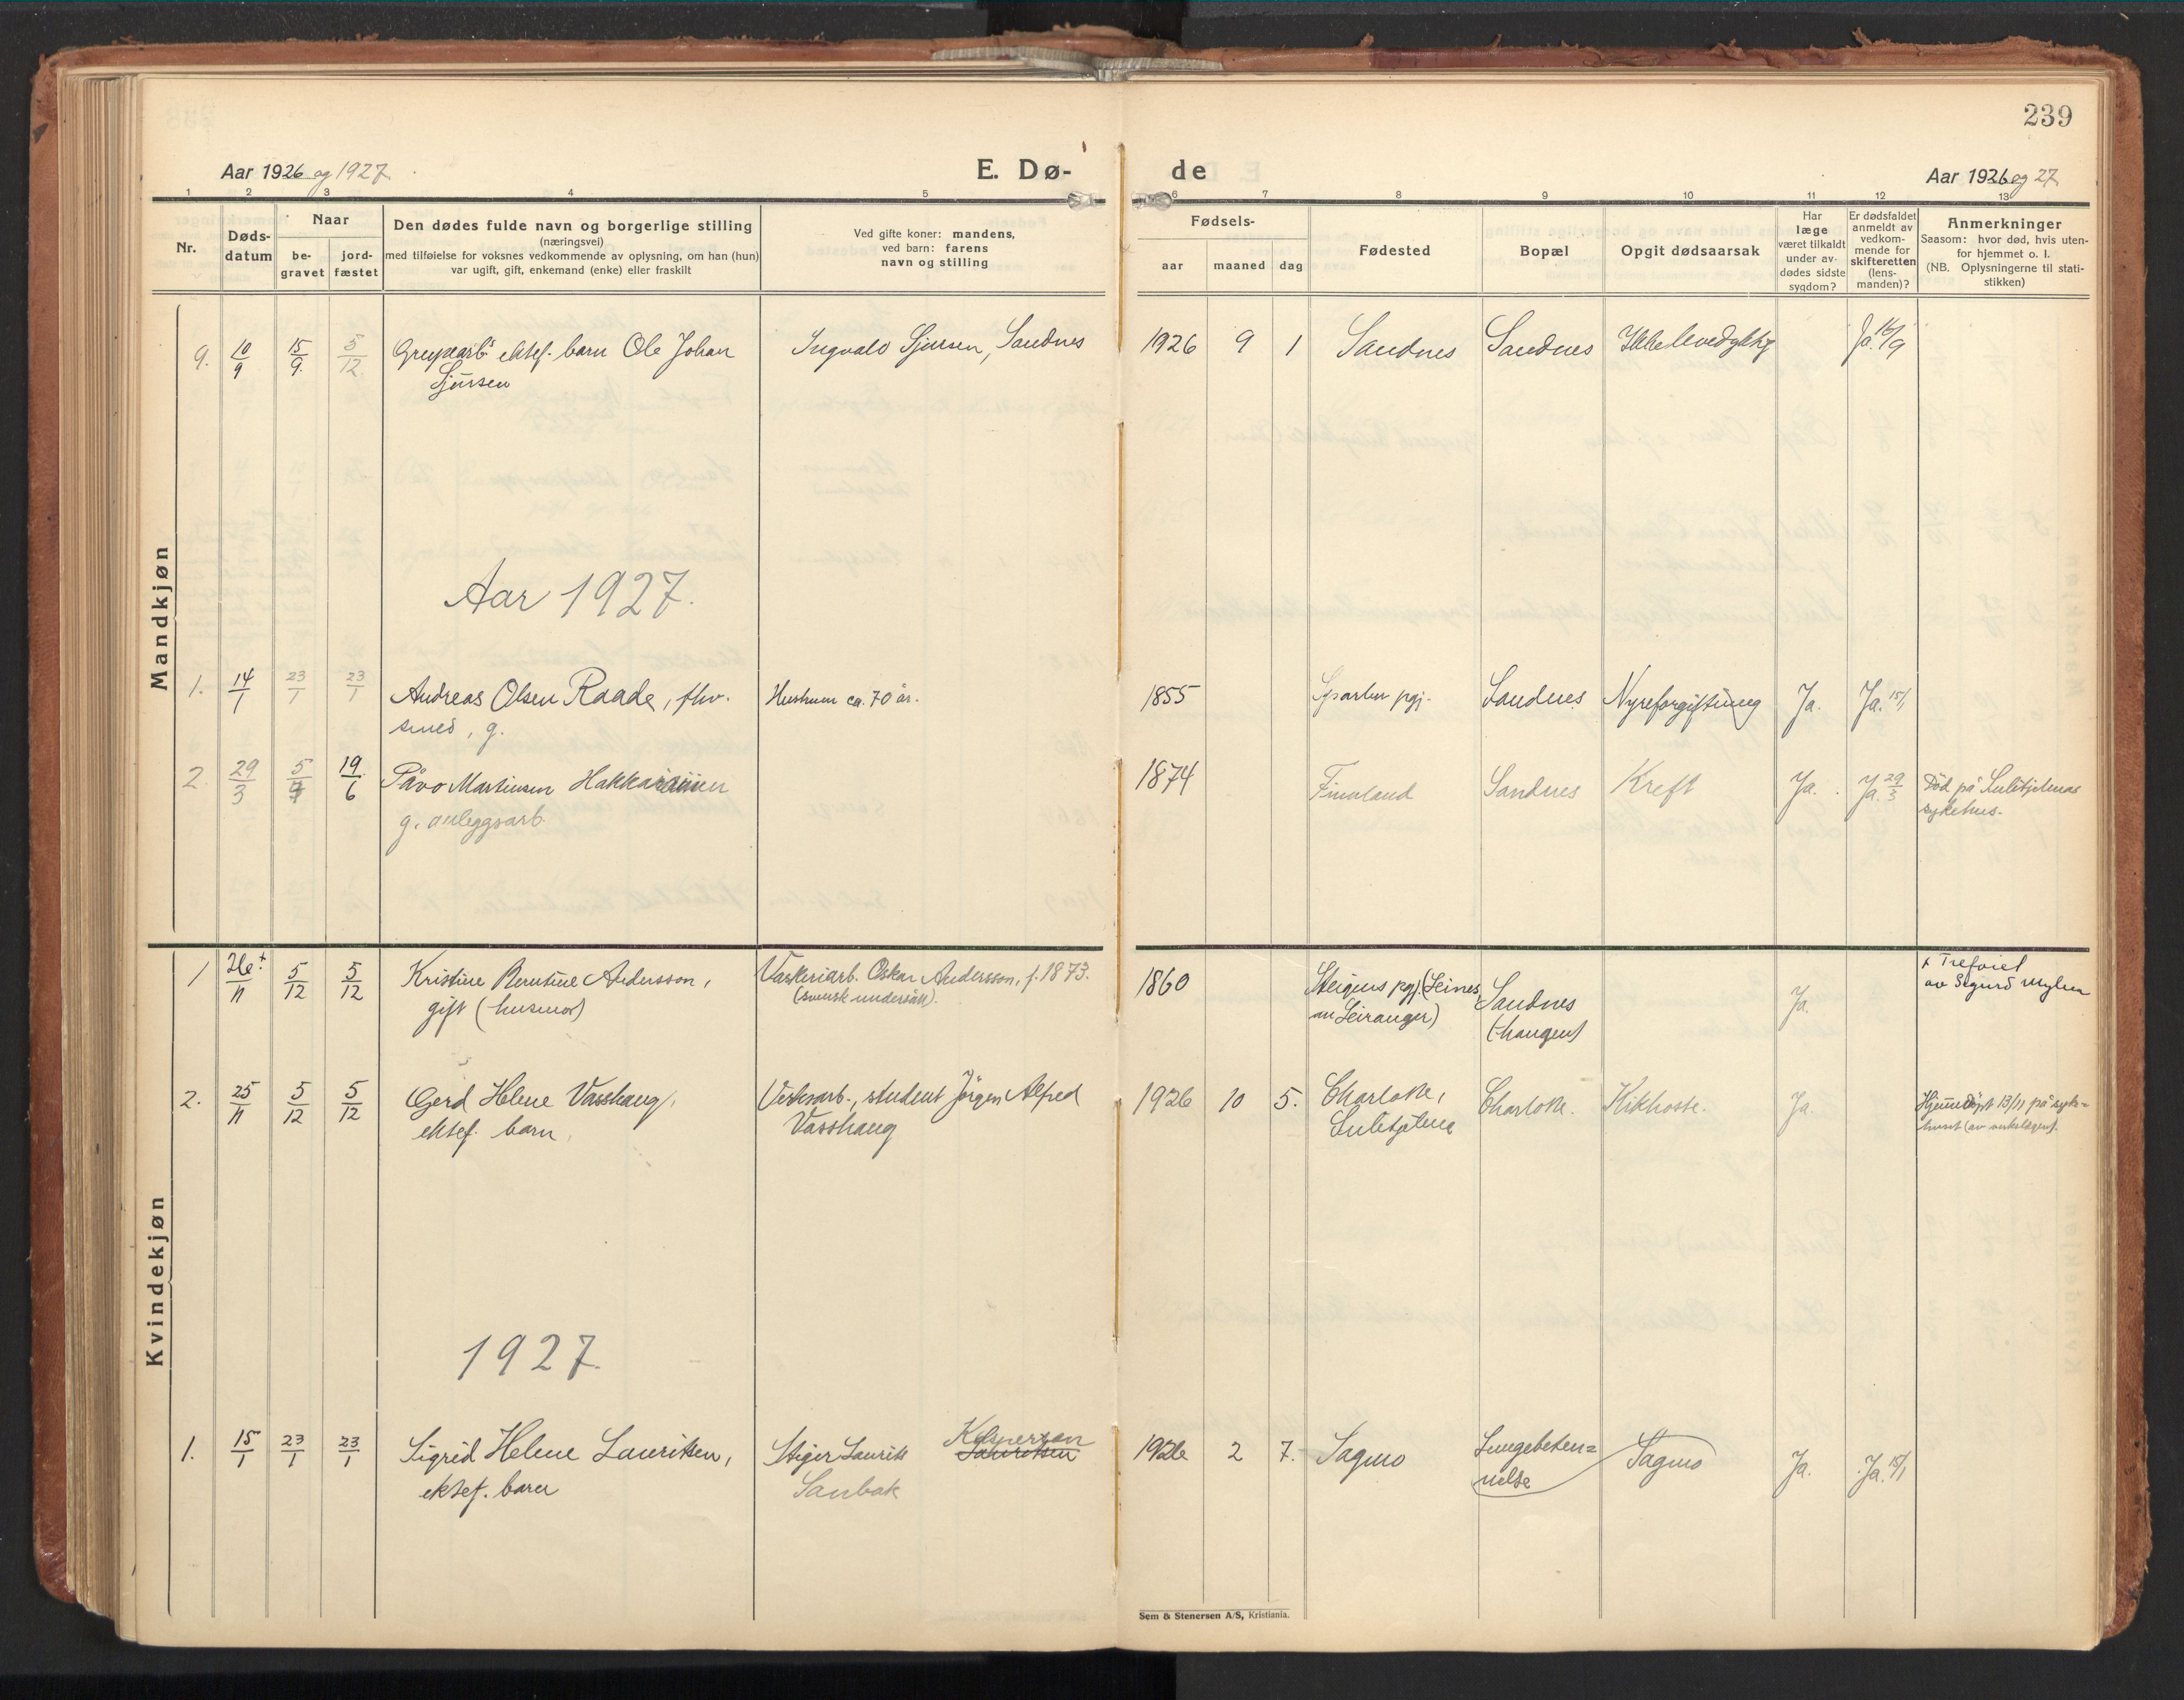 239
Aar 1926 og 1927. E. Dø- de Aar 1926 og 27
1 2 3 4 5 6 7 8 9 10 11 12 13
Nr.
Døds-
datum
Naar
be-
gravet
jord-
fæstet
Den dødes fulde navn og borgerlige stilling
(næringsvei)
med tilføielse for voksnes vedkommende av oplysning, om han (hun)
var ugift, gift, enkemand (enke) eller fraskilt
Ved gifte koner: mandens,
ved barn: farens
navn og stilling
Fødsels-
aar maaned dag
Fødested
Bopæl
Opgit dødsaarsak
Har
læge
været tilkaldt
under av-
dødes sidste
sygdom?
Er dødsfaldet
anmeldt av
vedkom-
mende for
skifteretten
(lens-
manden)?
Anmerkninger
Saasom: hvor død, hvis uten-
for hjemmet o. l.
(NB. Oplysningerne til stati-
stikken)
Mandkjøn
9. 10/9 15/9. 5/12 ektef. barn Ole Johan Ingvald Sjursen, Sandnes 1926 9 1 Sandnes Sandnes Ikke levedyktig Ja. 16/9
Sjursen
Aar 1927.
1. 14/1 23/1 23/1 Andreas Olsen Raade, fhv. Hustruen ca. 70 år. 1855 pgj. Sandnes Nyreforgiftning Ja. Ja. 15/1
smed, g.
2 29/3 5/4 19/6 Påvo Martinsen Hakkarainen 1874 Finnland Sandnes Kreft Ja. Ja. 29/3 Död på Sulitjelmas
g. anleggsarb. sykehus.
Kvindekjøn
1 /11 5/12 5/12 Kristine Berntine Andersson, Vaskeriarb. Oskar Andersson, f. 1873. 1860 Steigens pgj. (Leines Sandnes Ja. + Trefoiet
gift (husmor) (svensk undersått). Leiranger) (haugen) av Sigurd
2. 25/11 5/12 5/12 Gerd Helene Vasshaug, Verksarb., student Jörgen Alfred 1926 10 5. Charlotte, Charlotte. Kikhoste. Ja. Hjemmedöpt 13/11 på syke-
ektef. barn Vasshaug Sulitjelma huset (av verkslægen).
1927.
1. 15/1 23/1 23/1 Sigrid Helene Lauritsen, Stiger Laurits Lauritsen 1926 2 7. Sagmo Lungebeten= Sagmo Ja. Ja. 15/1
ektef. barn Sanbak nelse
Sem & Stenersen A/S, Kristiania.